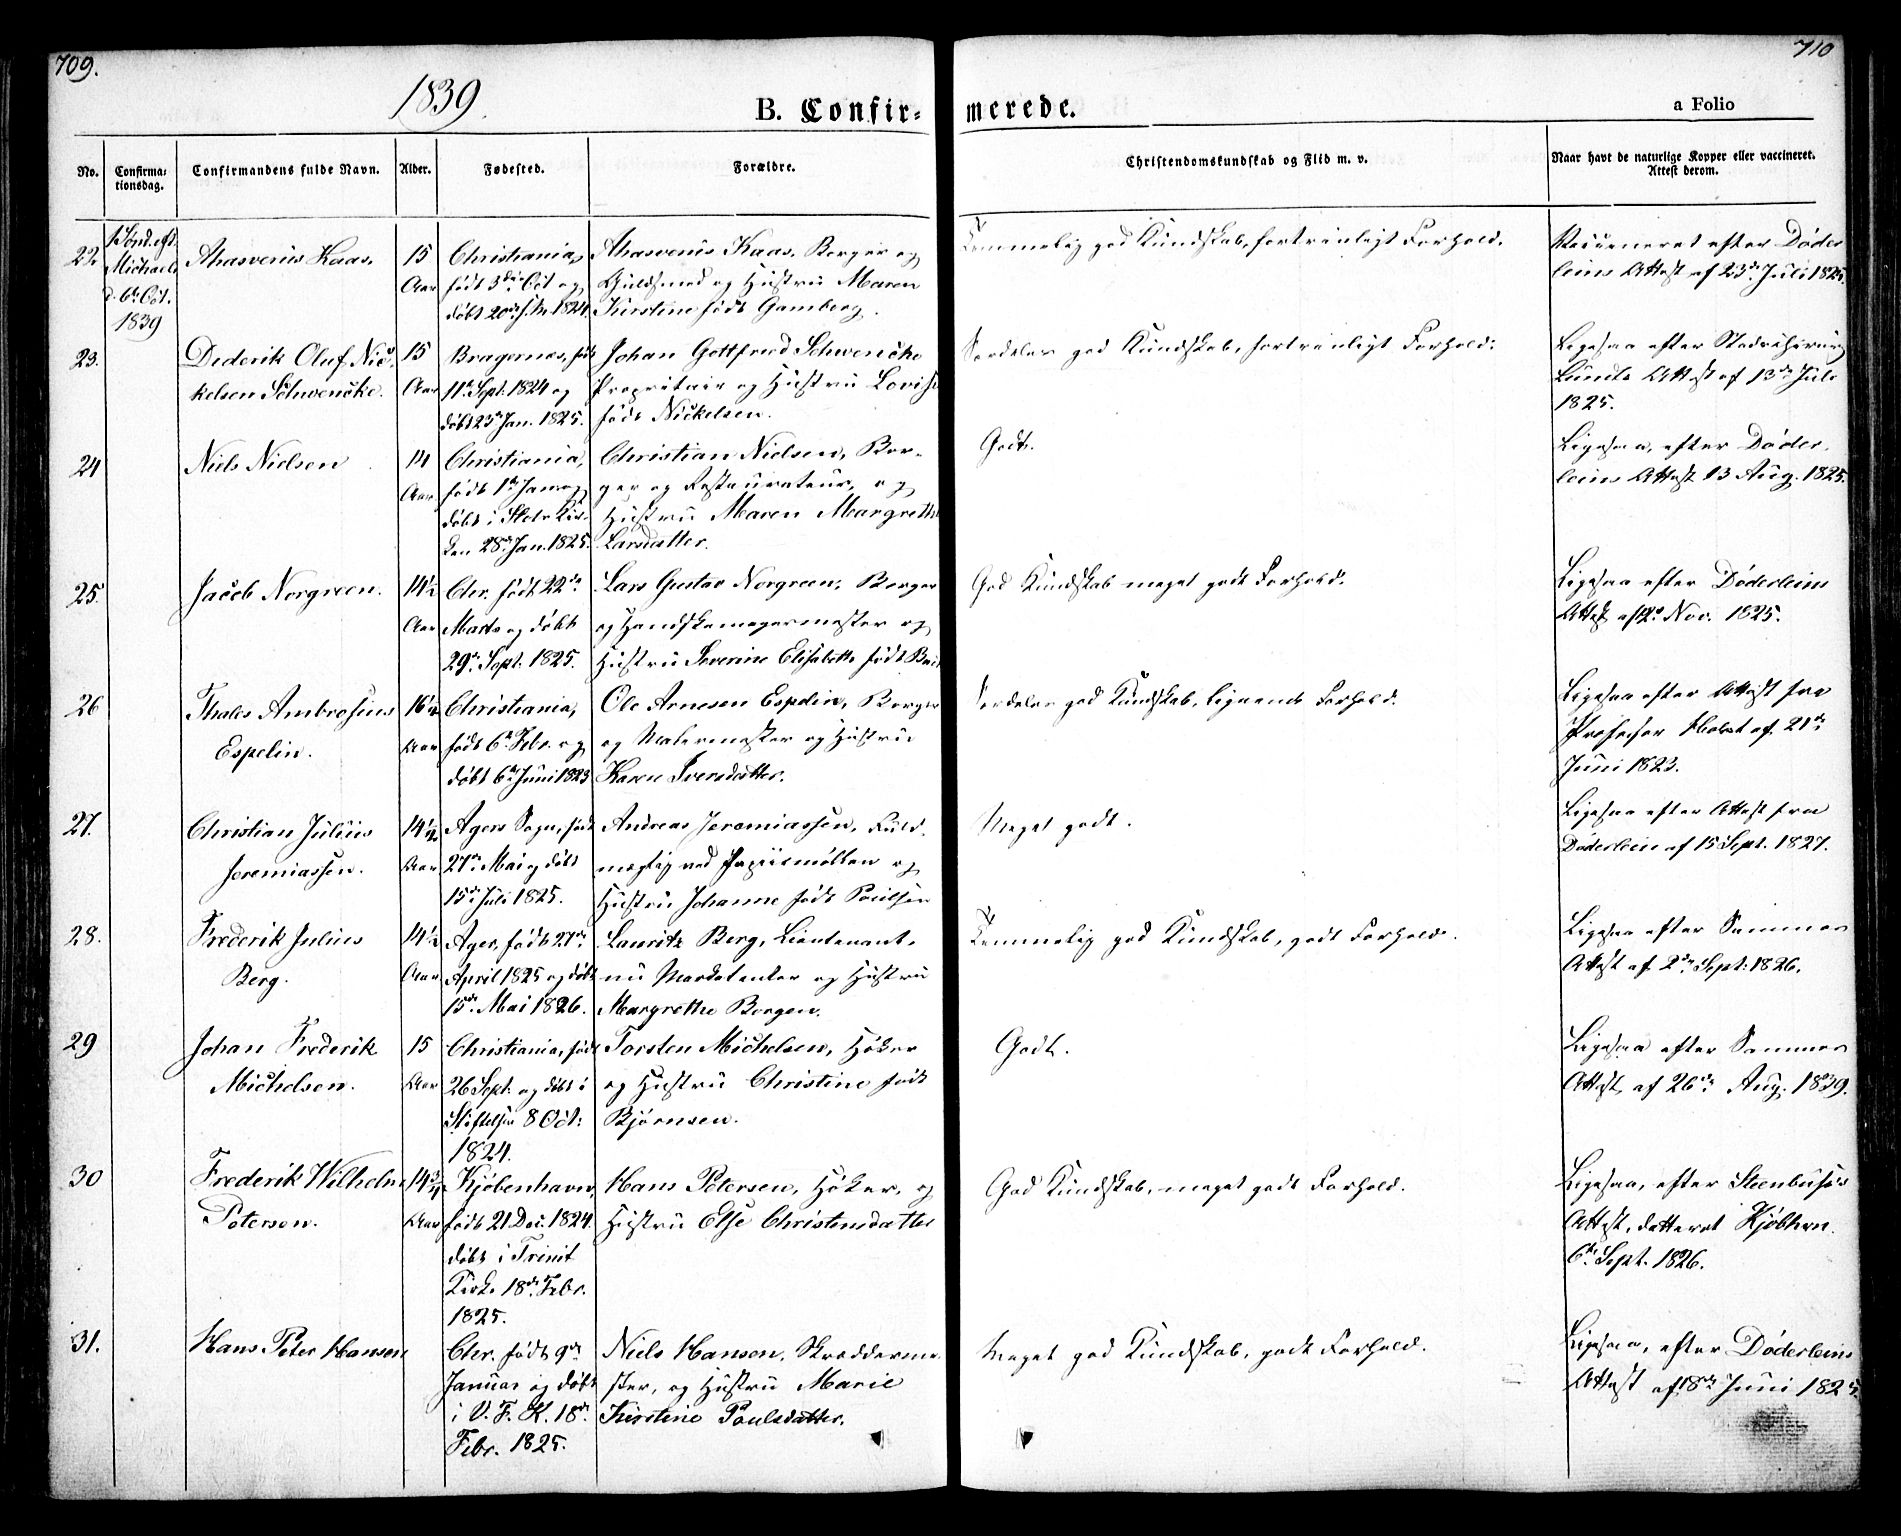 709.
710
1839.
B. Confir-
merede.
a Folio
No.
Confirma-
tionsdag.
Confirmandens fulde Navn.
Alder.
Fødested.
Forældre.
Christendomskundskab og Flid m. v.
Naar havt de naturlige Kopper eller vaccineret.
Attest derom.
22
1 Sønd. eft.
Michaeli
d. 6te Oct.
1839
Ahasverus Kaas.
15
Aar
Christiania,
født 3die Oct og
døbt 20de s. M. 1824.
Ahasverus Kaas, Borger og
Guldsmed og Hustru Maren
Kirstine født Gamborg.
Temmelig god Kundskab, fortrinligt Forhold.
Vaccineret efter Døder
leins Attest af 23de Juli 1825.
23.
Dederik Oluf Nic-
kelsen Schwencke.
15
Aar
Bragernes, født
11te Sept. 1824 og
døbt 23de Jan. 1825.
Johan Gottfried Schwencke
Proprietair og Hustru Lovise
født Nickelsen.
Serdeles god Kundskab, fortrinligt Forhold.
Ligesaa efter Stadschirurg
Lunds Attest af 13de Juli
1825.
24
Niels Nielsen
14
Aar
Christiania,
født 1te Jan. og
døbt i Slots Kir-
ken 28de Jan. 1825.
Christian Nielsen, Bor-
ger og Restaurateur, og
Hustru Maren Margrethe
Larsdatter.
Godt.
Ligesaa, efter Døder-
leins Attest 13 Aug. 1825.
25.
Jacob Norgreen.
14½
Aar
Chr. født 22de
Marts og døbt
29de Sept. 1825.
Lars Gustav Norgreen, Borger
og Handskemagermester og
Hustru Severine Elisabeth født
God Kundskab meget godt Forhold.
Ligesaa efter Døderleins
Attest af Nov. 1825.
26
Thales Ambrosius
Espelin.
16½
Aar
Christiania,
født 6te Febr. og
døbt 6te Juni 1823
Ole Arnesen Espelin, Borger
og Malermester og Hustru
Karen Iversdatter.
Serdeles god Kundskab, lignende Forhold.
Ligesaa efter Attest fra
Professor Holst af 21de
Juni 1823.
27.
Christian Julius
Jeremiassen.
14½
Aar
Agers Sogn, født
27de Mai og døbt
15de Juli 1825.
Andreas Jeremiassen, Fuld-
mægtig ved Papiirmøllen og
Hustru Johanne født Poulsen
Meget godt.
Ligesaa efter Attest fra
Døderlein af 15 Sept. 1827.
28.
Frederik Julius
Berg.
14½
Aar
Ager, født 27de
April 1825 og døbt
15de Mai 1826.
Lauritz Berg, Lieutenant,
nu Marketenter og Hustru
Margrethe Borgen.
Temmelig god Kundskab, godt Forhold.
Ligesaa efter Sammes
Attest af 2den Sept: 1826.
29
Johan Frederik
Michelsen.
15
Aar
Christiania, født
26 Sept. og døbt i
Stiftelsen 8 Oct:
1824.
Torsten Michelsen, Høker
og Hustru Christine født
Bjørnsen.
Godt.
Ligesaa efter Sammes
Attest, af 26de Aug. 1839.
30
Frederik Wilhelm
Petersen.
14¾
Aar
Kjøbenhavn,
født 21. Dec. 1824.
døbt i Trinit
Kirke 18de Febr.
1825.
Hans Petersen, Høker, og
Hustru Else Christensdatter
God Kundskab, meget godt Forhold.
Ligesaa, efter Steenbuchs
Attest, datteret Kjøbhvn.
6te Sept. 1826.
31.
Hans Peter Hansen
Chr. født 9de
Januar og døbt
i V. F. K. 18de
Febr. 1825.
Niels Hansen, Skræddermes
ster, og Hustru Marie
Kirstine Poulsdatter.
Meget god Kundskab, godt Forhold.
Ligesaa, efter Døderleins
Attest af 18de Juni 1825.